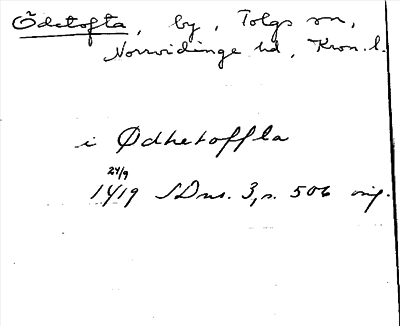 Ödetofta, by, Tolgs sn,
Norrvidinge hd, Kron. l.
i Ødhetoffla
24/9
1419 SDns. 3, s. 506 orig.